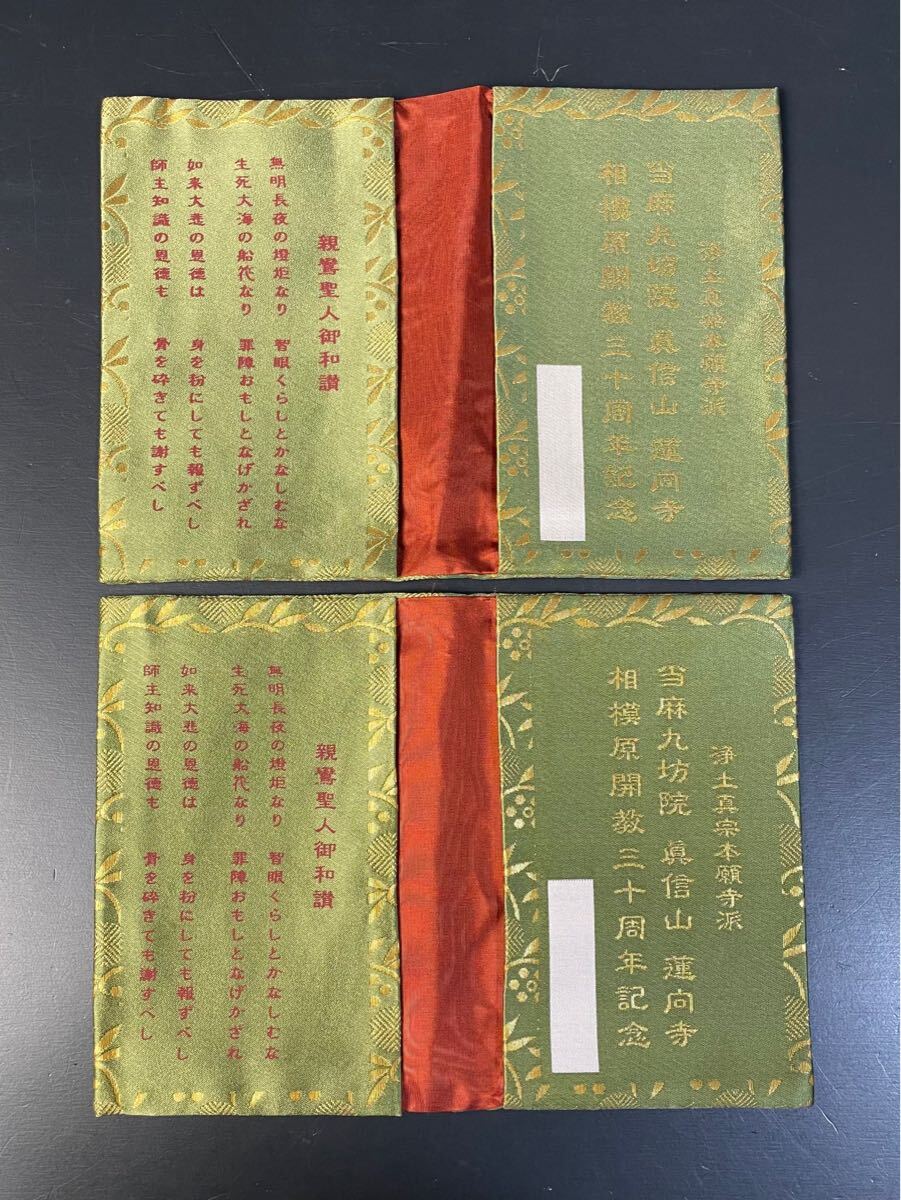 浄土真宗本願寺派
当麻九坊院 眞信山 蓮向寺
相模原開教三十周年記念
親鸞聖人御和讃
無明長夜の燈炬なり 智眼くらしとかなしむな
生死大海の船筏なり 罪障おもしとなげかざれ
如来大悲の恩徳は 身を粉にしても報ずべし
師主知識の恩徳も 骨を砕きても謝すべし
浄土真宗本願寺派
当麻九坊院 眞信山 蓮向寺
相模原開教三十周年記念
親鸞聖人御和讃
無明長夜の燈炬なり 智眼くらしとかなしむな
生死大海の船筏なり 罪障おもしとなげかざれ
如来大悲の恩徳は 身を粉にしても報ずべし
師主知識の恩徳も 骨を砕きても謝すべし